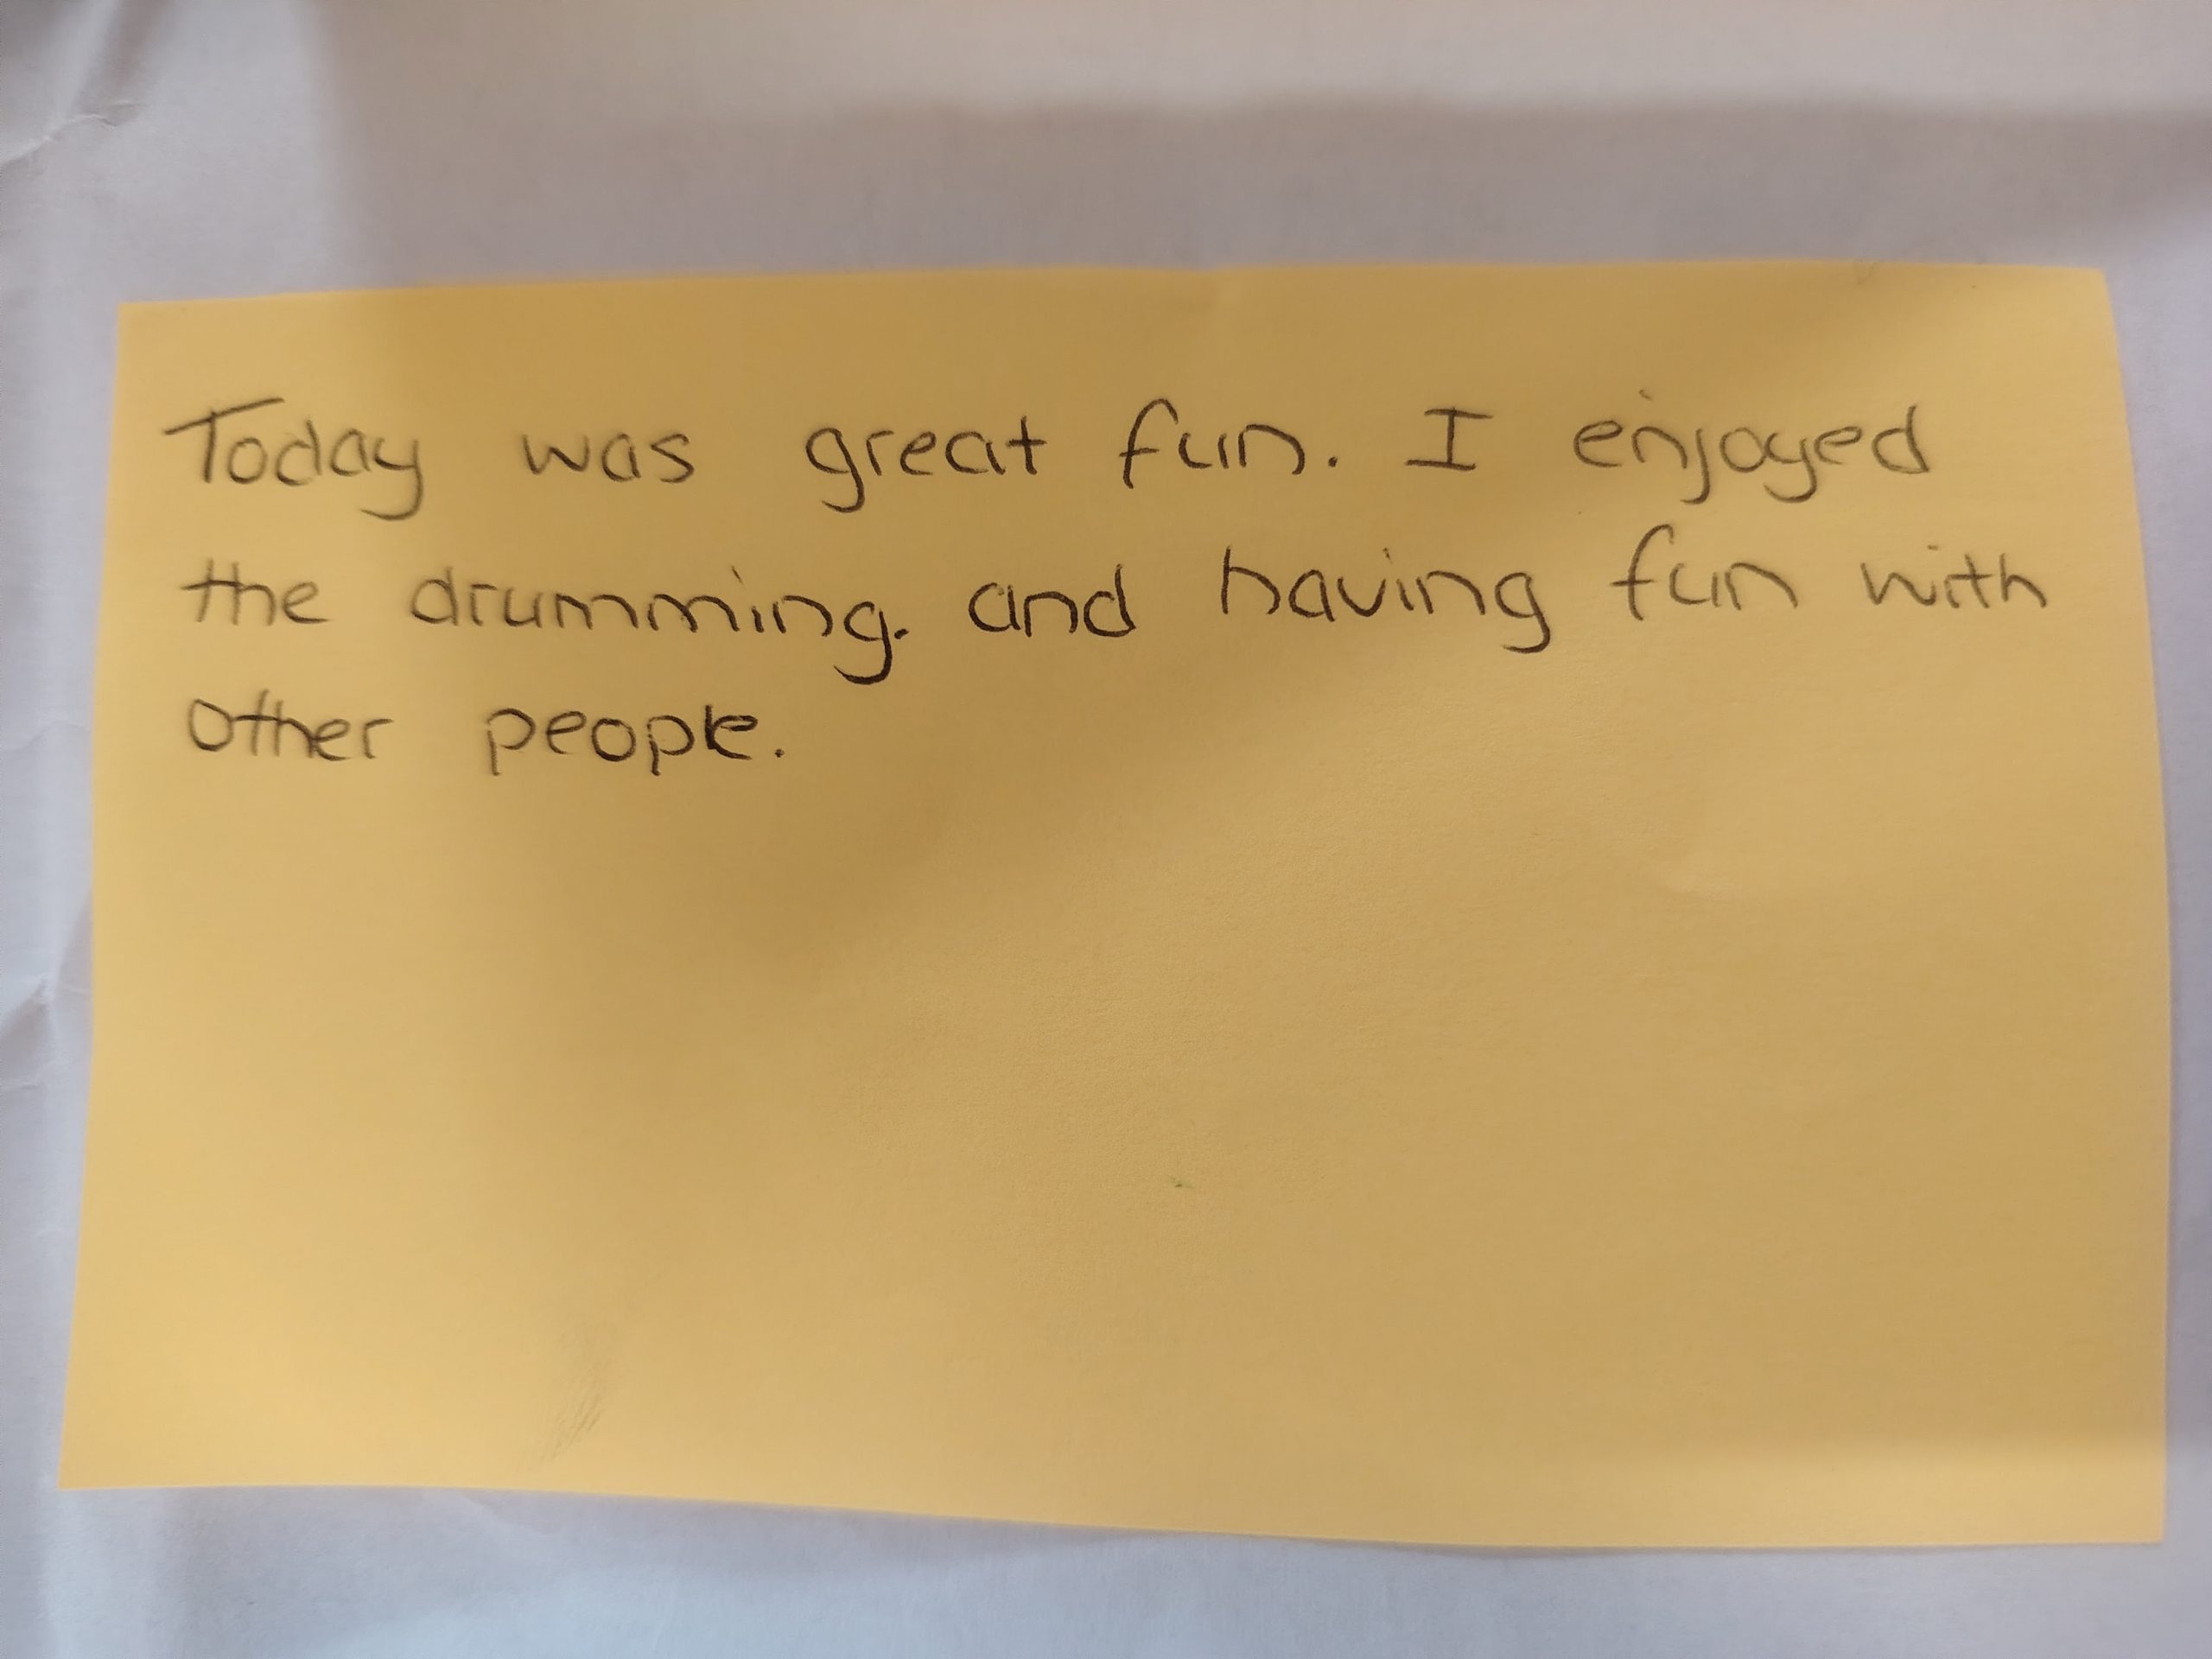 Today was great fun. I enjoyed
the drumming. and having fun with
other people.